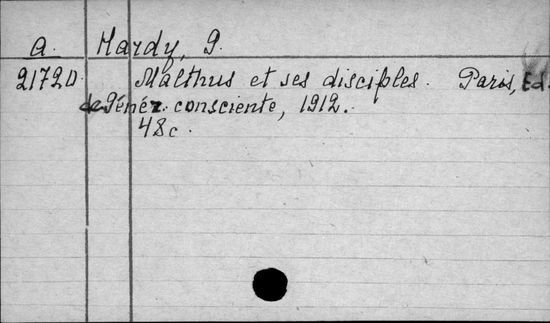 a. Hardy, G.
21720. Malthus et ses disciples. Paris, Ed.
de Génér. consciente, 1912.
48c.